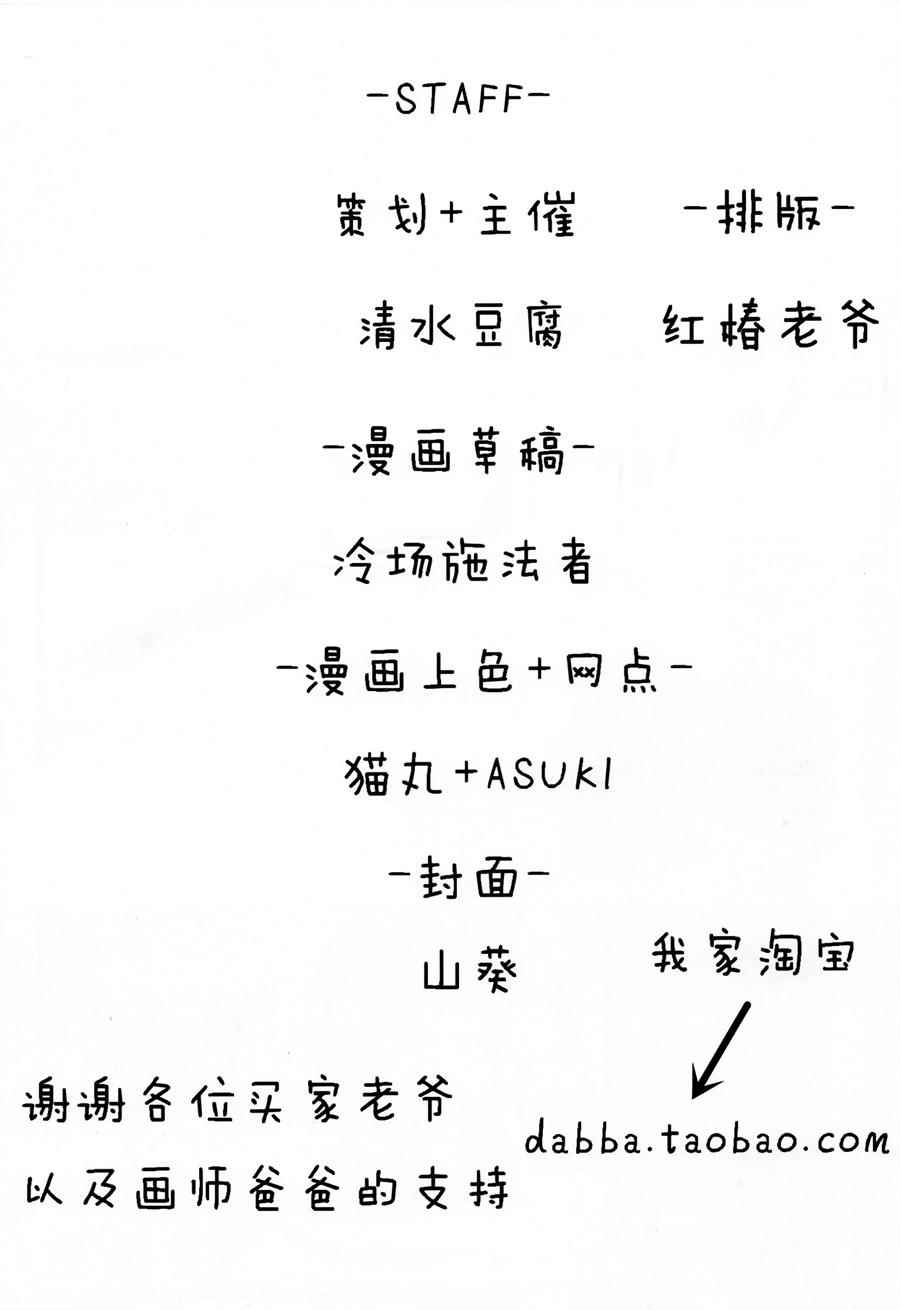 -STAFF-
策划+主催
清水豆腐
-排版-
红椿老爷
-漫画草稿-
冷场施法者
-漫画上色+网点-
猫丸+ASUKI
-封面-
山葵
我家淘宝
dabba.taobao.com
谢谢各位买家老爷
以及画师爸爸的支持